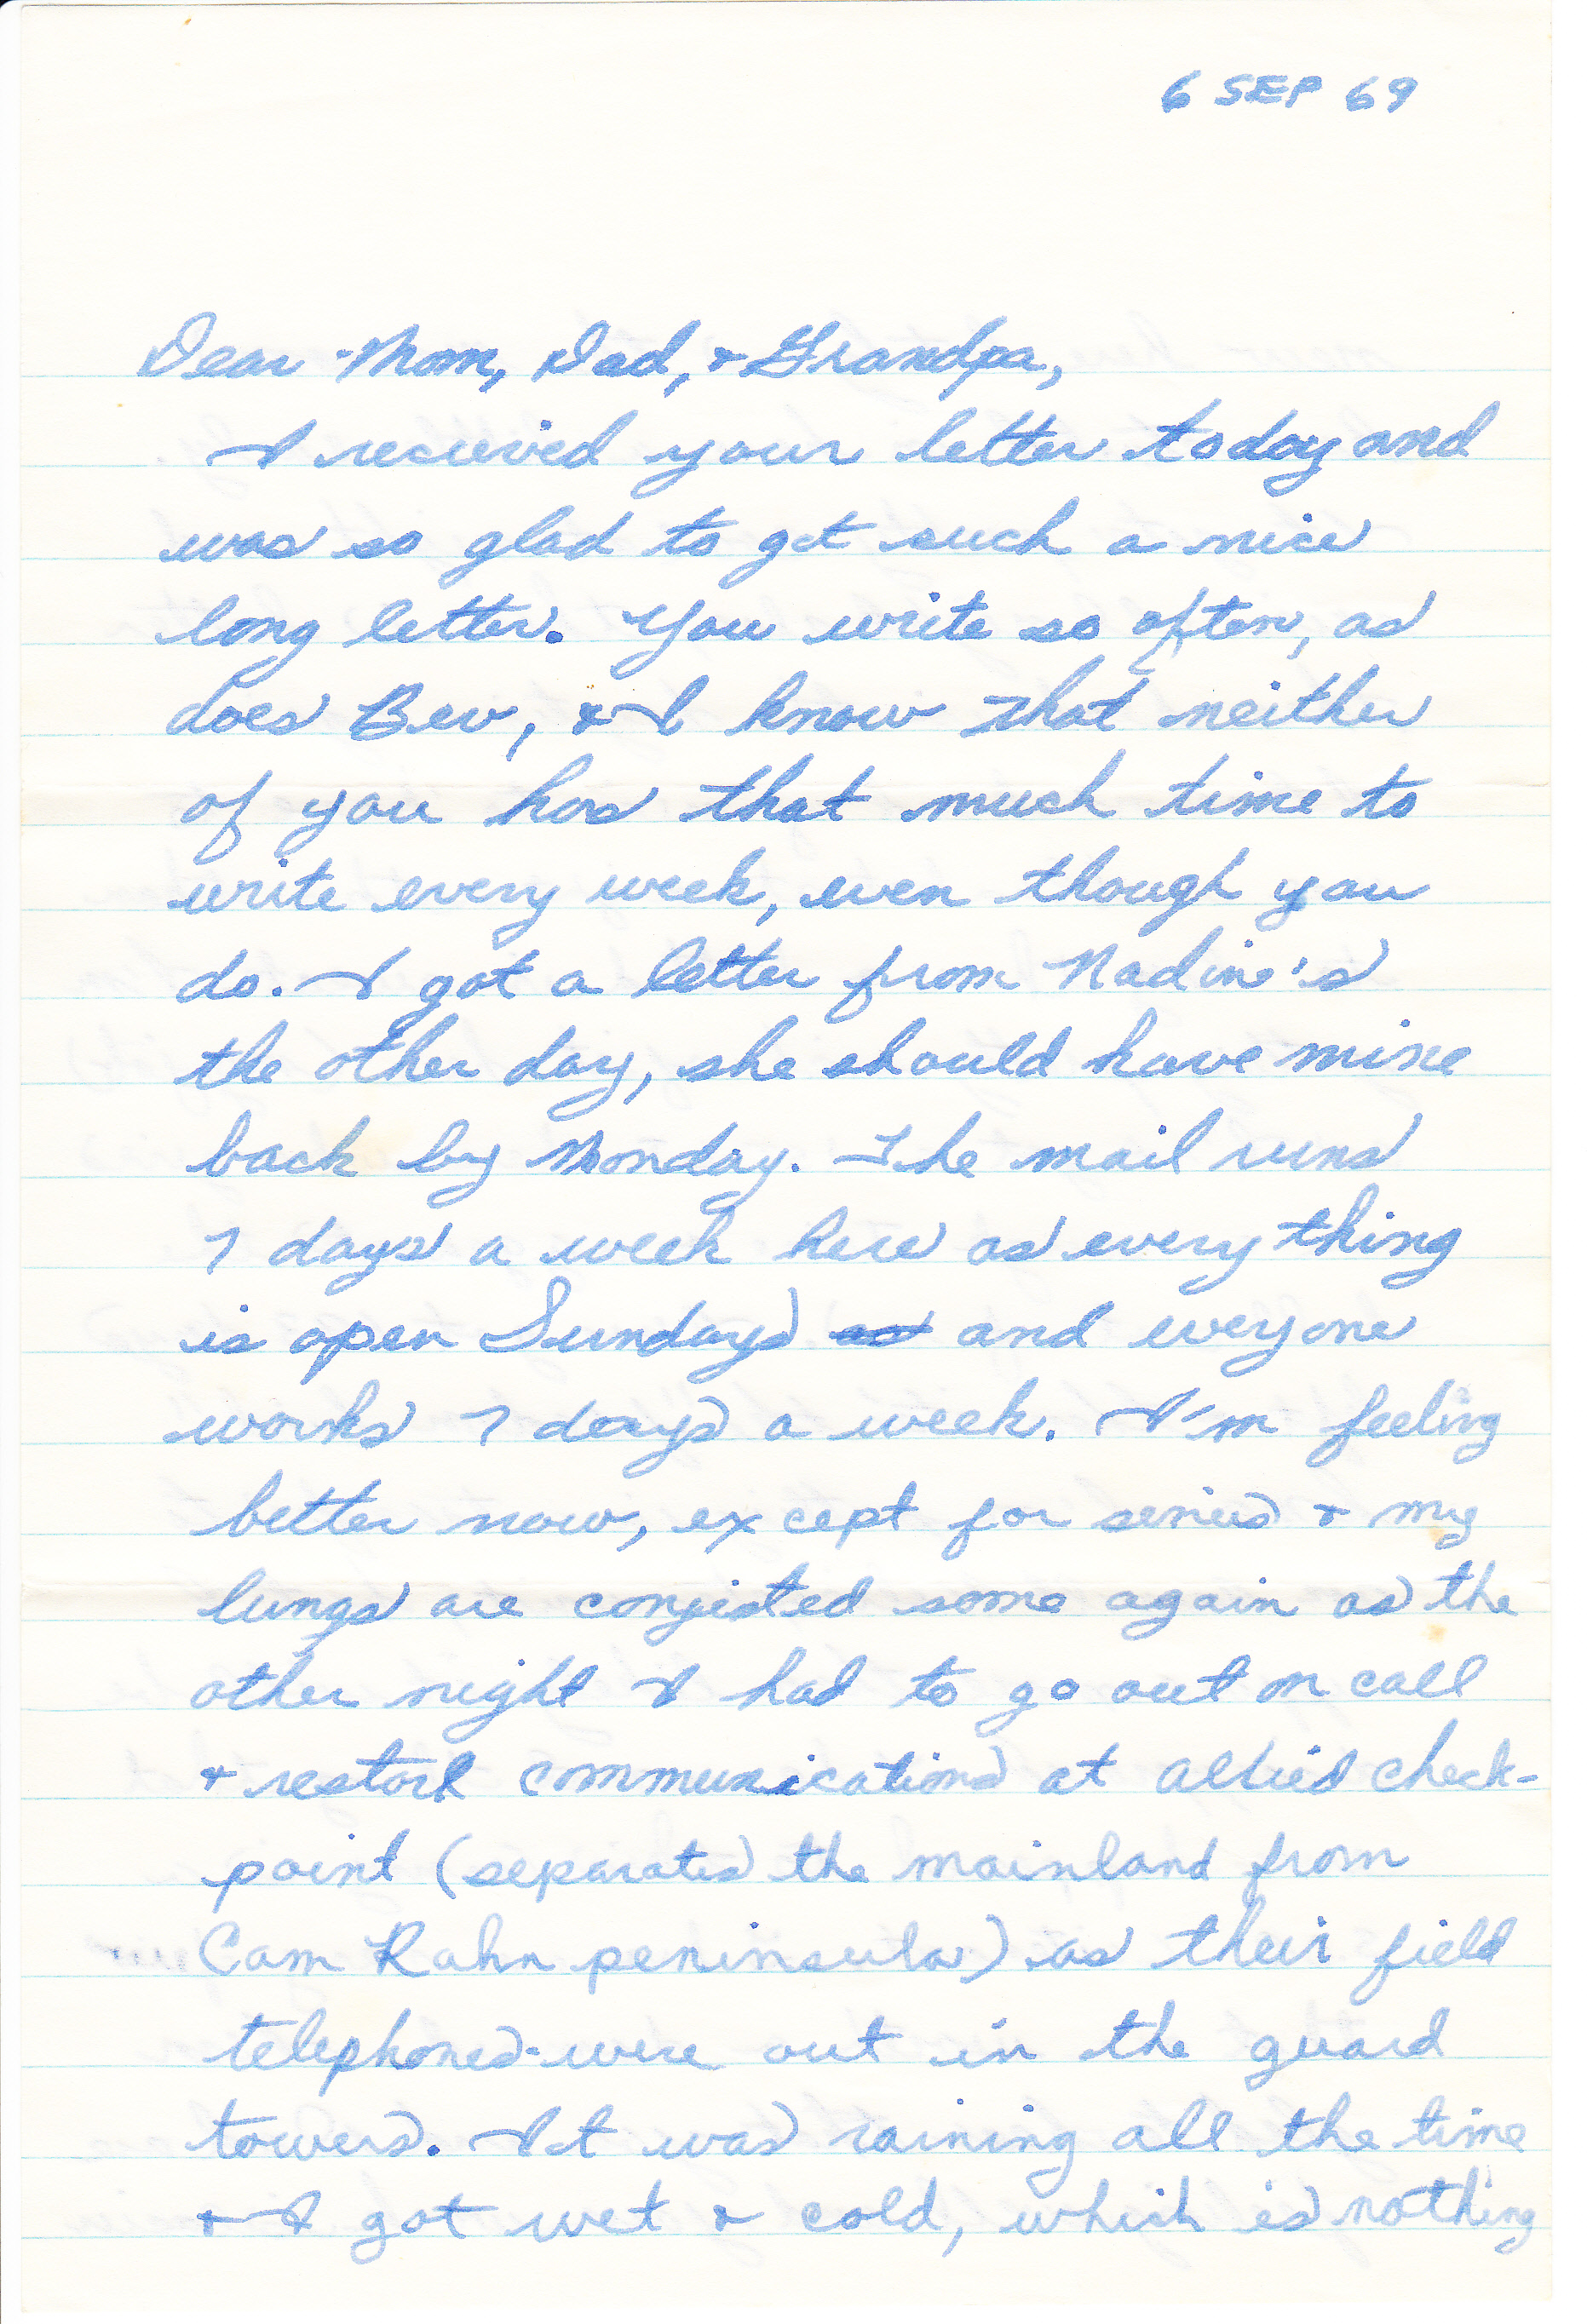 6 SEP 69
Dear Mom, Dad, & Grandpa,
I recieved your letter today and
was so glad to get such a nice
long letter. You write so often, as
does Bev, & I know that neither
of you has that much time to
write every week, even though you
do. I got a letter from Nadine's
the other day, she should have mine
back by Monday. The mail runs
7 days a week here as every thing
is open Sundays as and everyone
works 7 days a week. I'm feeling
better now, except for sinus & my
lungs are conjested some again as the
other night I had to go out on call
& restore communications at allied check-
point (separates the mainland from
Cam Rahn peninsula) as their field
telephones were out in the guard
towers. It was raining all the time
& I got wet & cold, which is nothing